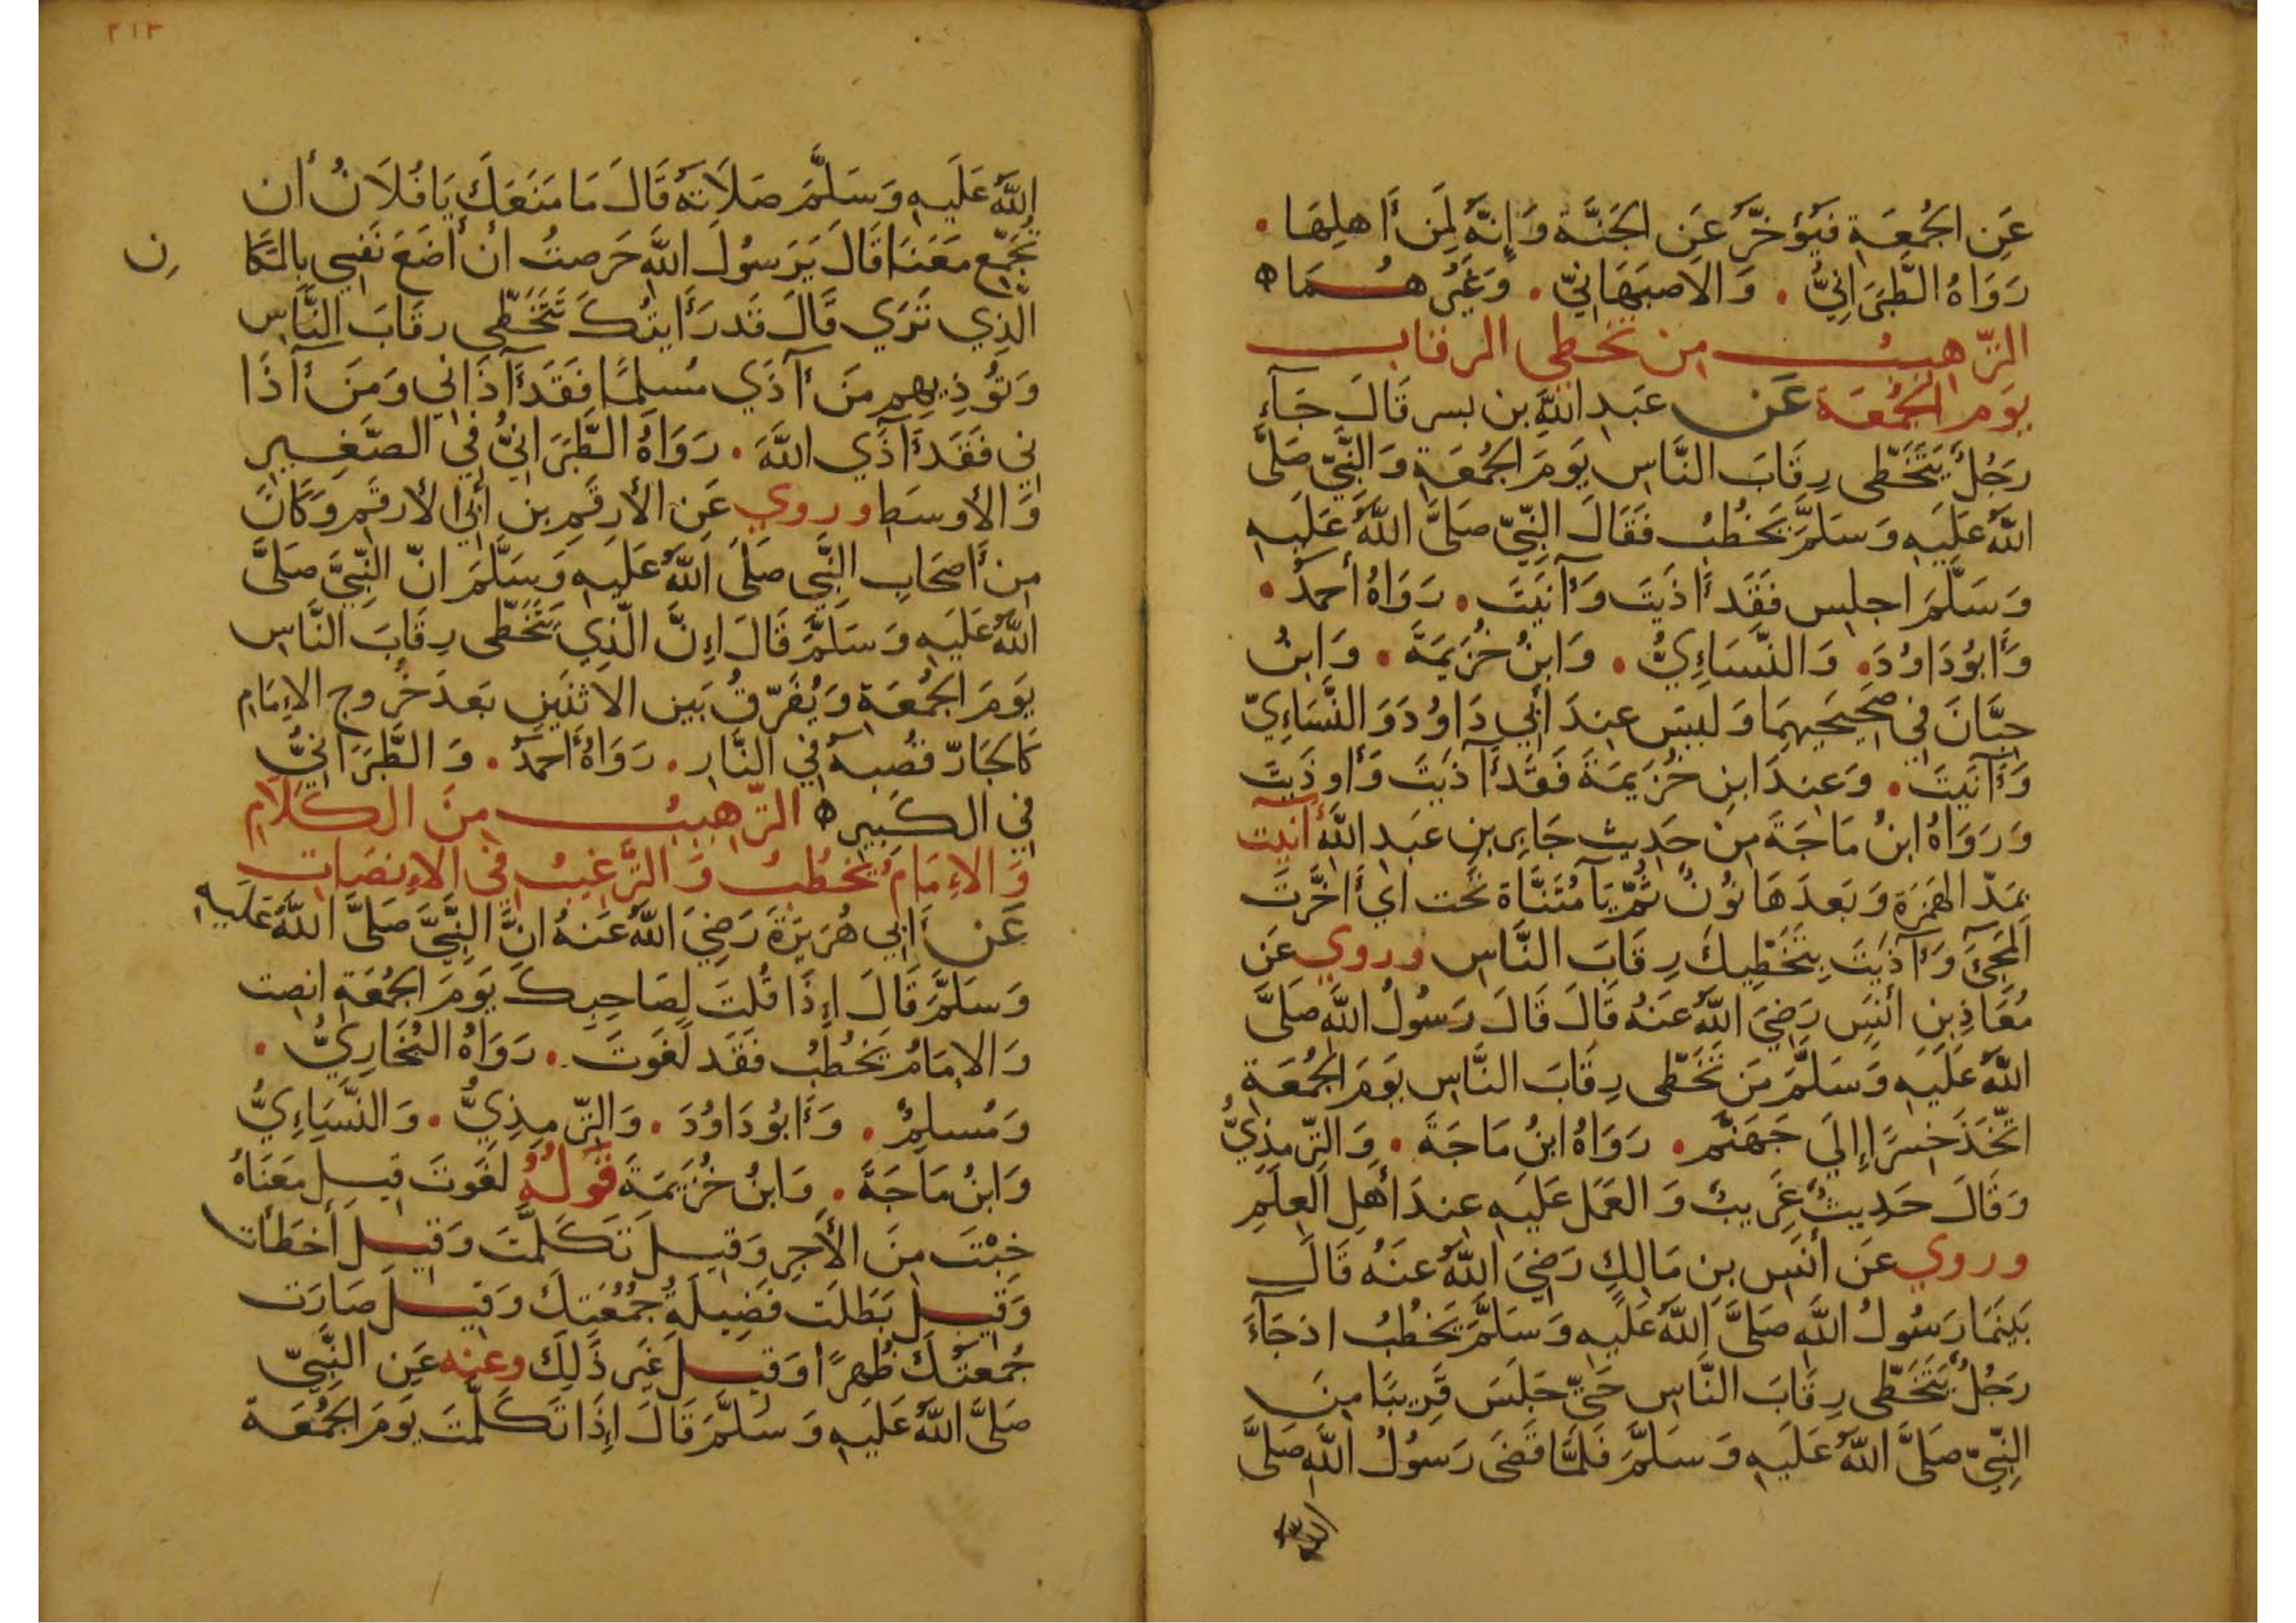 عَنِ الجُمُعَةِ فَيُؤَخَّرُ عَنِ الجَنَّةِ وَإِنَّهُ لَمِنْ أَهلِهَا .
رَوَاهُ الطَّبَرَانِيُّ . وَالأصبَهَانِيّ . وَغَيرُهُمَا ه
الترهيب من تخطي الرقاب
يوم الجمعة عَن عَبدِ اللَّهِ بن بسر قَالَ جَآءَ
رَجُلٌ يَتَخَطّى رِقَابَ النَّاسِ يَومَ الجُمُعَةِ وَالنَّبِيّ صَلَّى
اللَّهُ عَلَيهِ وَسَلَّمَ يَخطُبُ فَقَالَ النَّبِيّ صَلَّى اللَّهُ عَلَيهِ
وَسَلَّمَ اجلِس فَقَد أَاذَيتَ وَآنَيتَ . رَوَاهُ أحمَدُ .
وَأَبُو دَاوُدَ . وَالنَّسَاءِيُّ . وَابنُ خُزَيمَةَ . وَابنُ
حِبَّانَ في صَحِيحَيهِمَا وَلَيسَ عِندَ أَبِي دَاوُدَ وَالنَّسَاءِيّ
وَآنَيتَ . وَعِندَ ابنِ خُزَيمَةَ فَقَد آذَيتَ وَأُوذَيتَ
وَرَوَاهُ ابنُ مَاجَةَ مِنْ حَدِيثِ جَابِرِ بنِ عَبدِ اللَّهِ آنَيت
بِمَدّ الهَمزَةِ وَبَعدَهَا نُونٌ ثُمَّ يَآ مُثَنَّاة تَحت اي أَخَّرتَ
المَجِيَ وَآذَيتَ بِتَخَطِّيكَ رِقَابَ النَّاسِ وروي عَن
مُعَاذِ بنِ أَنَسٍ رَضِيَ اللَّهُ عَنهُ قَالَ قَالَ رَسُولُ اللَّهِ صَلَّى
اللَّهُ عَلَيهِ وَسَلَّمَ مَن تَخَطّى رِقَابَ النَّاسِ يَومَ الجُمُعَةِ
اتَّخَذَ جِسرًا إِلَي جَهَنَّم . رَوَاهُ ابنُ مَاجَةَ . وَالتِّرمِذِيُّ
وَقَالَ حَدِيثٌ غَرِيبٌ وَالعَمَل عَلَيهِ عِندَ أَهلِ العِلمِ
وروي عَن أَنَسِ بنِ مَالِكٍ رَضِيَ اللَّهُ عَنهُ قَالَ
بَينَمَا رَسُولُ اللَّهِ صَلَّى اللَّهُ عَلَيهِ وَسَلَّمَ يَخطُبُ اذ جَآءَ
رَجُلٌ يَتَخَطّى رِقَابَ النَّاسِ حَتّى جَلَسَ قَرِيبًا مِنَ
النَّبِيّ صَلَّى اللَّهُ عَلَيهِ وَسَلَّمَ فَلَمَّا قَضَى رَسُولُ اللَّهِ صَلَّى
٢١٣
اللَّهُ عَلَيهِ وَسَلَّمَ صَلَاتَهُ قَالَ مَا مَنَعَكَ يَا فُلَانُ أَن
تُجَمّع مَعَنَا قَالَ يَرَسُولَ اللَّهِ حَرَصتُ أن أَضَعَ نَفسِي بِالمَكَا ن
الَّذِي تَرَي قَالَ قَد رَأَيتُكَ تَتَخَطّى رِقَابَ النَّاسِ
وَتُؤذِيهِم مَن آذَي مُسلِمًا فَقَد آذَاني وَمَن آذَا
ني فَقَد آذَي اللَّهَ . رَوَاهُ الطَّبَرَانِيُّ فِي الصَّغِيرِ
وَالأوسَطِ وروي عَنِ الأرقَمِ بنِ أَبِي الأرقَمِ وَكَانَ
مِن أَصحَابِ النَّبِي صَلَّى اللَّهُ عَلَيهِ وَسَلَّمَ انّ النَّبِيَّ صَلَّى
اللَّهُ عَلَيهِ وَسَلَّمَ قَالَ إِنَّ الَّذِي يَتَخَطّى رِقَابَ النَّاسِ
يَومَ الجُمُعَةِ وَيُفَرّقُ بَينَ الاثنَينِ بَعدَ خُرُوجِ الإمَامِ
كَالجَارّ قُصبَهُ فِي النَّارِ . رَوَاهُ أَحمَدُ . وَالطَّبَرَانِيُّ
فِي الكَبِيرِ ه الترهيب مِنَ الكَلَامِ
وَالإمَامُ يَخطُبُ وَالتَّرغِيبُ فِي الإنصَاتِ
عَن أَبِي هُرَيرَةَ رَضِيَ اللَّهُ عَنهُ انَّ النَّبِيَّ صَلَّى اللَّهُ عَلَيهِ
وَسَلَّمَ قَالَ إِذَا قُلتَ لِصَاحِبِكَ يَومَ الجُمُعَةِ انصِت
وَالإمَامُ يَخطُبُ فَقَد لَغَوتَ . رَوَاهُ البُخَارِيُّ .
وَمُسلِمٌ . وَأَبُو دَاوُدَ . وَالتِّرمِذِيُّ . وَالنَّسَاءِيُّ
وَابنُ مَاجَةَ . وَابنُ خُزَيمَةَ قَولُهُ لَغَوتَ قِيلَ مَعنَاهُ
خِبْتَ مِنَ الأَجرِ وَقِيلَ تَكَلَّمتَ وَقِيلَ أَخطَأتَ
وَقِيلَ بَطَلَت فَضِيلَةُ جُمُعَتِكَ وَقِيلَ صَارَت
جُمعَتُكَ ظُهرًا وَقِيلَ غَير ذَلِكَ وعنه عَنِ النَّبِيّ
صَلَّى اللَّهُ عَلَيهِ وَسَلَّمَ قَالَ إِذَا تَكَلَّمتَ يَومَ الجُمُعَة